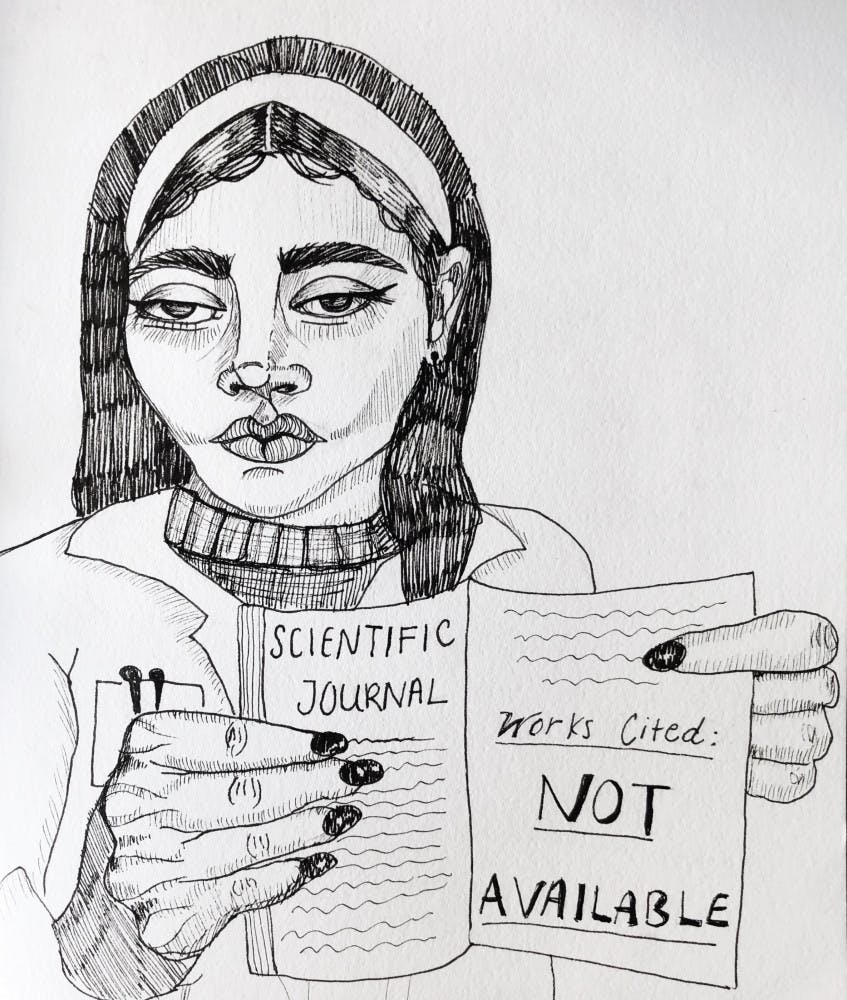 SCIENTIFIC
JOURNAL
Works Cited:
NOT
AVAILABLE